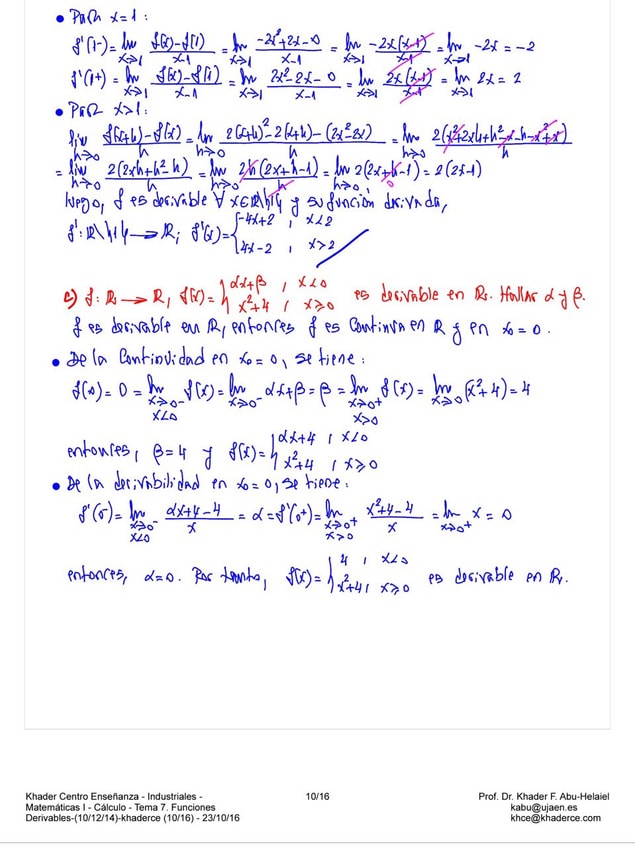 • Para x=1:
f'(1-)= lim x→1 f(x)-f(1)/x-1 = lim x→1 -2x²+2x-0/x-1 = lim x→1 -2x(x-1)/x-1 = lim x→1 -2x = -2
f'(1+)= lim x→1 f(x)-f(1)/x-1 = lim x→1 2x²-2x-0/x-1 = lim x→1 2x(x-1)/x-1 = lim x→1 2x = 2
• Para x>1:
lim h→0 f(x+h)-f(x)/h = lim h→0 2(x+h)²-2(x+h)-(2x²-2x)/h = lim h→0 2(x²+2xh+h²-x-h-x²+x)/h
= lim h→0 2(2xh+h²-h)/h = lim h→0 2h(2x+h-1)/h = lim h→0 2(2x+h-1) = 2(2x-1)
0
luego, f es derivable ∀ x∈R\{1} y su función derivada,
f': R\{1} → R, f'(x)= { -4x+2 , x<2
4x-2 , x>2
c) f: R → R, f(x)= { αx+β , x<0
x²+4 , x≥0 es derivable en R. Hallar α y β.
f es derivable en R, entonces f es continua en R y en x₀=0.
• De la continuidad en x₀=0, se tiene:
f(0)=0= lim x→0⁻ x<0 f(x)= lim x→0⁻ αx+β=β= lim x→0⁺ x>0 f(x)= lim x→0 (x²+4)=4
entonces, β=4 y f(x)= { αx+4 , x<0
x²+4 , x≥0
• De la derivabilidad en x₀=0, se tiene:
f'(0⁻)= lim x→0⁻ x<0 αx+4-4/x = α = f'(0⁺)= lim x→0⁺ x>0 x²+4-4/x = lim x→0⁺ x = 0
entonces, α=0. Por tanto, f(x)= { 4 , x<0
x²+4 , x≥0 es derivable en R.
Khader Centro Enseñanza - Industriales -
Matemáticas I - Cálculo - Tema 7. Funciones
Derivables-(10/12/14)-khaderce (10/16) - 23/10/16
10/16
Prof. Dr. Khader F. Abu-Helaiel
kabu@ujaen.es
khce@khaderce.com